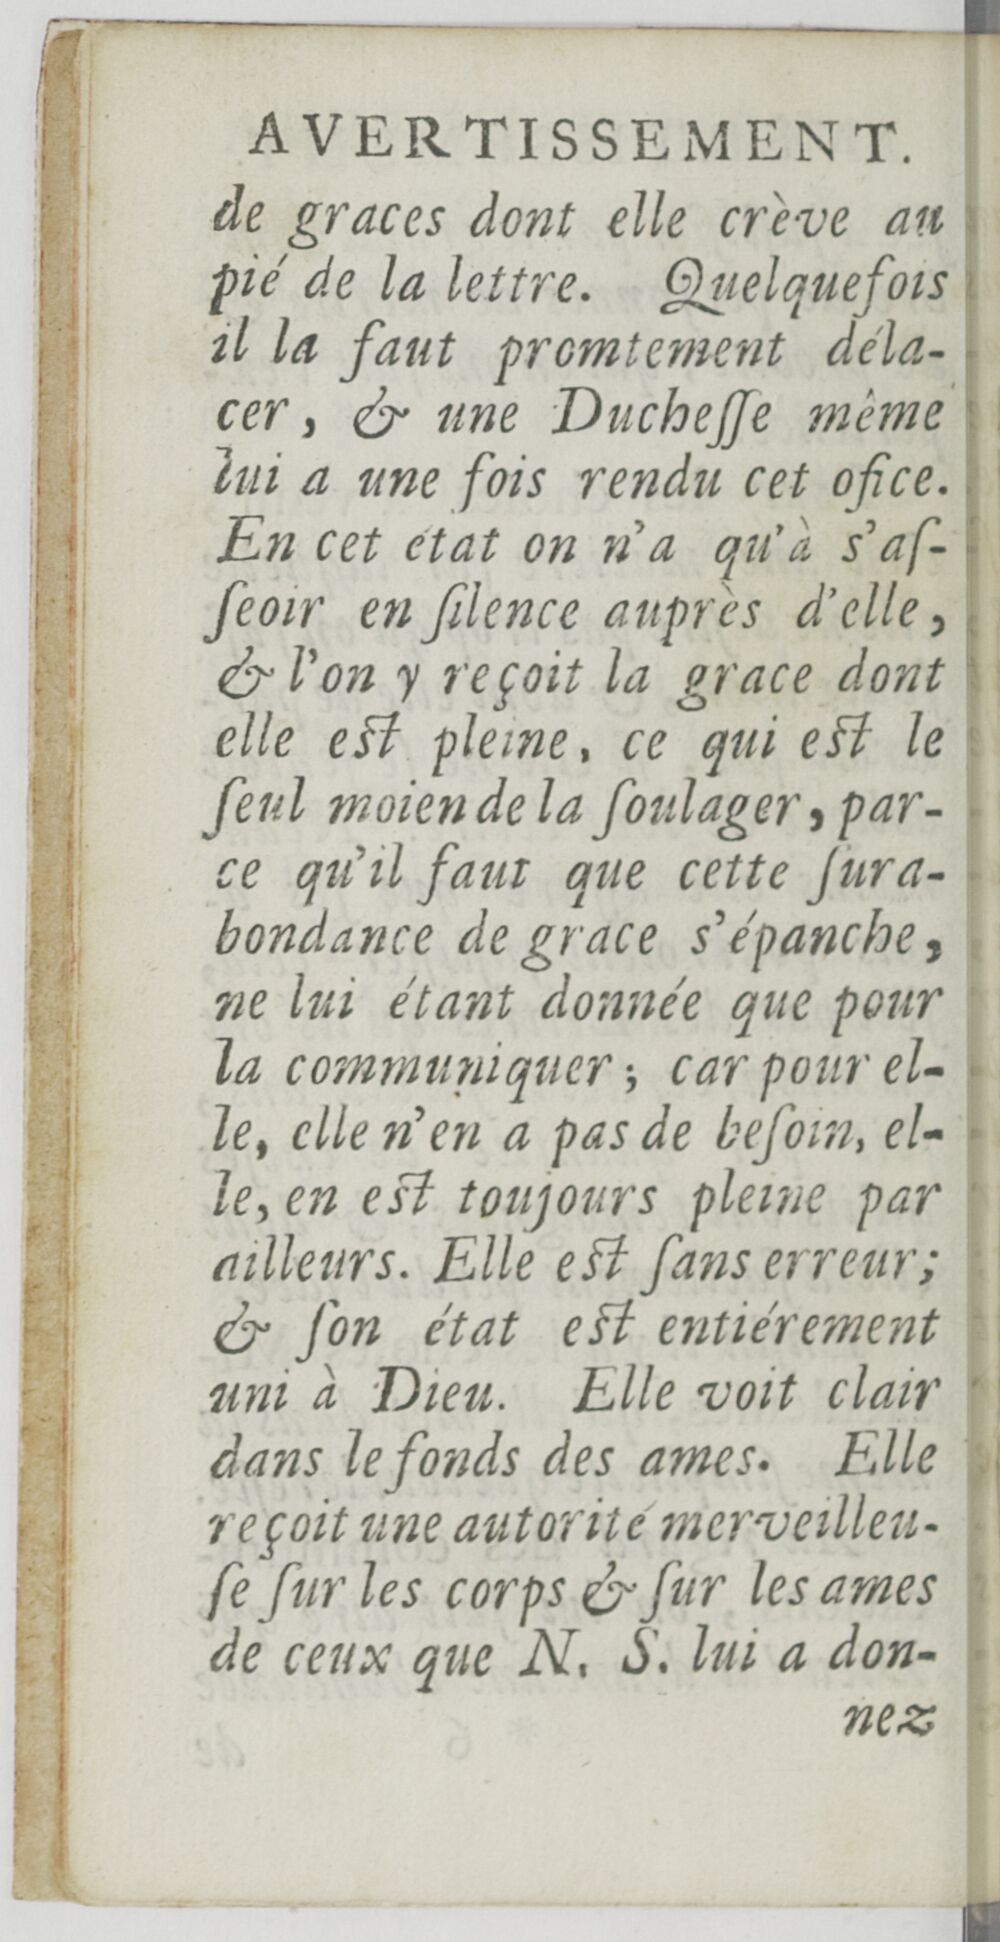 AVERTISSEMENT.
de graces dont elle crève au
pié de la lettre. Quelquefois
il la faut promtement déla-
cer, & une Ducheſſe même
lui a une fois rendu cet ofice.
En cet état on n'a qu'à s'aſ-
ſeoir en ſilence auprès d'elle,
& l'on y reçoit la grace dont
elle eſt pleine, ce qui eſt le
ſeul moien de la ſoulager, par-
ce qu'il faut que cette ſura-
bondance de grace s'épanche,
ne lui étant donnée que pour
la communiquer; car pour el-
le, elle n'en a pas de beſoin, el-
le, en eſt toujours pleine par
ailleurs. Elle eſt ſans erreur;
& ſon état eſt entiérement
uni à Dieu. Elle voit clair
dans le fonds des ames. Elle
reçoit une autorité merveilleu-
ſe ſur les corps & ſur les ames
de ceux que N. S. lui a don-
nez